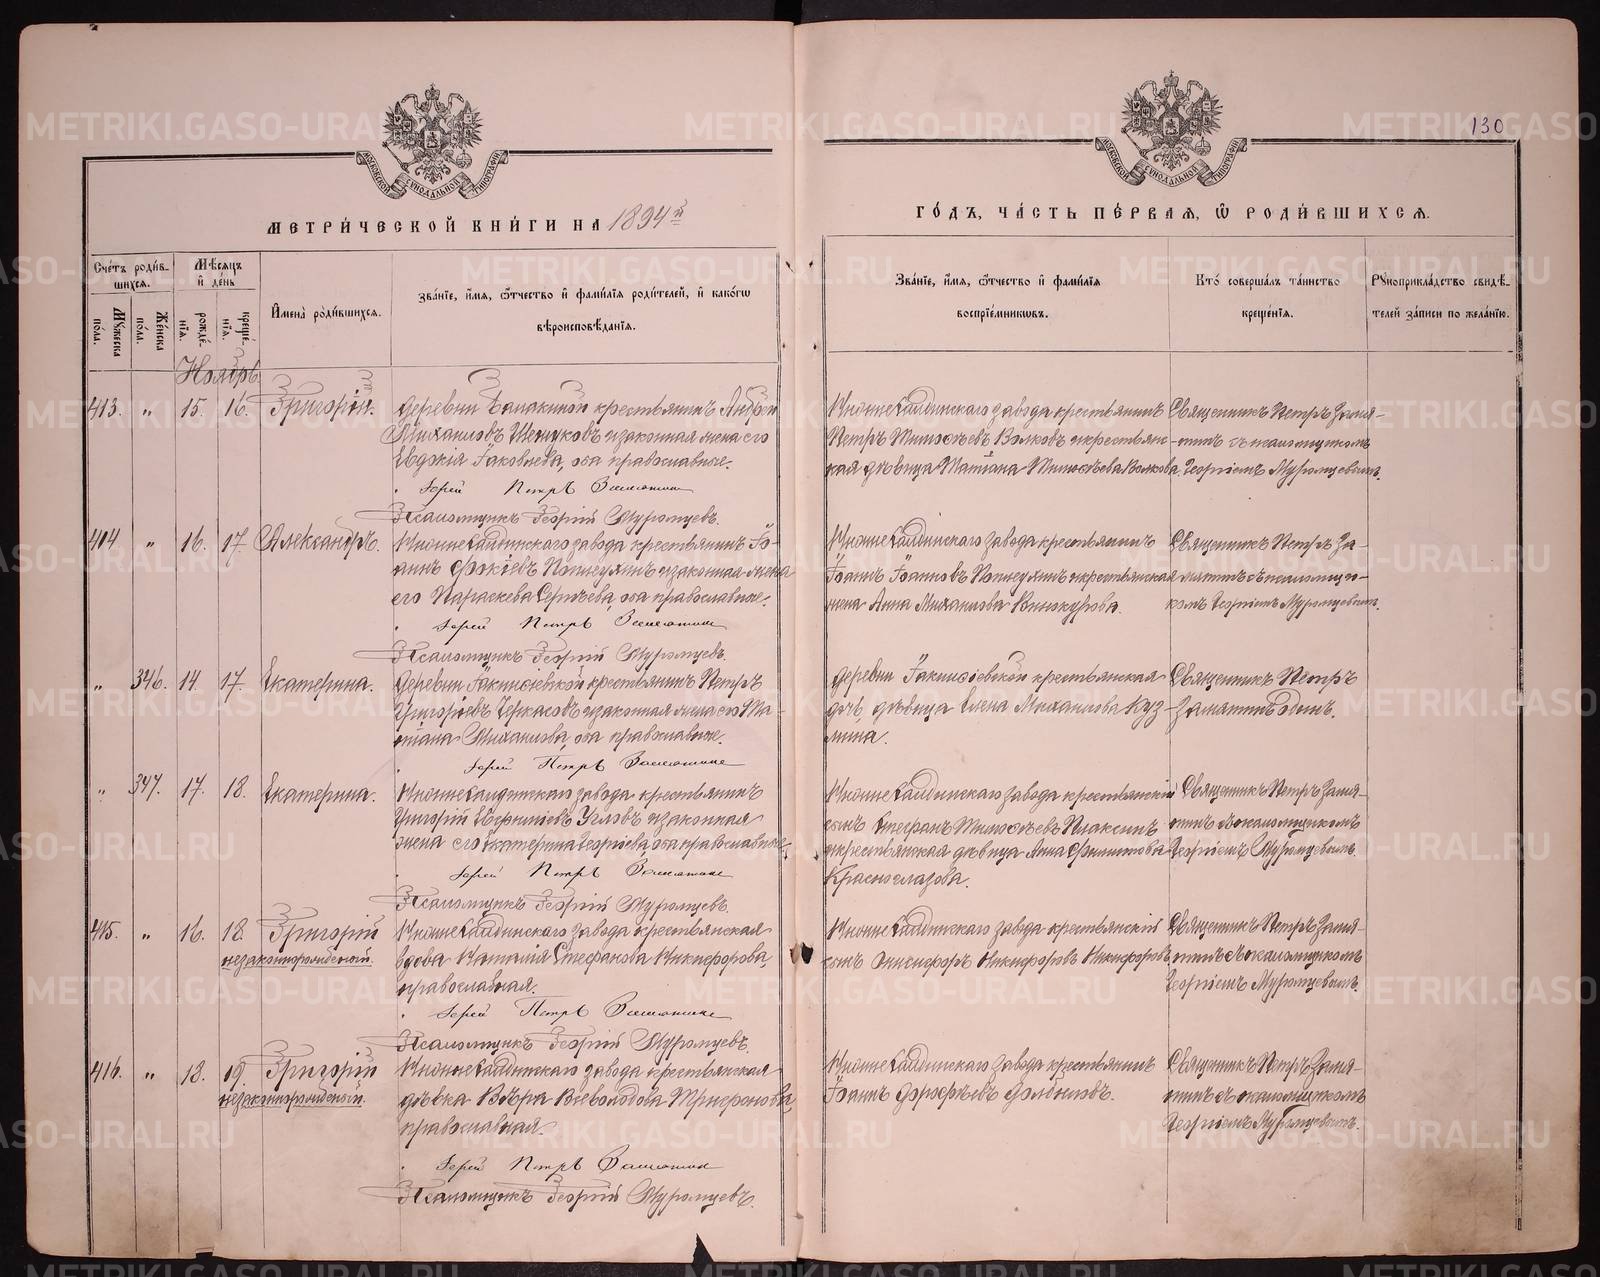 130
МОСКОВСКОЙ СѴНОДАЛЬНОЙ ТИПОГРАФІИ
МОСКОВСКОЙ СѴНОДАЛЬНОЙ ТИПОГРАФІИ
МЕТРИ́ЧЕСКОЙ КНИ́ГИ НА 1894й
ГО́ДЪ, ЧА́СТЬ ПЕ́РВАЯ, Ѿ РОДИ́ВШИХСЯ.
Сче́тъ роди́в-
шихся.
Мꙋжеска
по́ла.
Же́нска
по́ла.
Мѣ́сяцъ
и҆ де́нь
рожде́-
нїя.
креще́-
нїя.
И҆мена̀ роди́вшихся.
Зва́нїе, и҆́мя, ѻ҆́тчество и҆ фами́лїя роди́телей, и҆ како́гѡ
вѣроисповѣ́данїя.
Зва́нїе, и҆́мя, ѻ҆́тчество и҆ фами́лїя
воспрїе́мникѡвъ.
Кто̀ соверша́лъ та́инство
креще́нїя.
Рꙋкоприкла́дство свидѣ́-
телей за́писи по жела́нїю.
Ноябрь
413. „ 15. 16. Григорій.
деревни Балакиной крестьянинъ Андрей
Михаиловъ Шешуковъ и законная жена его
Евдокія Іаковлева, оба православные.
Іерей Петръ Замятинъ
Псаломщикъ Георгій Муромцевъ.
Нижнесалдинскаго завода крестьянинъ
Петръ Тимоѳеевъ Волковъ и крестьян-
ская дѣвица Татіана Тимоѳеева Волкова.
Священникъ Петръ Замя-
тинъ съ псаломщикомъ
Георгіемъ Муромцевымъ.
414 „ 16. 17. Александръ.
Нижнесалдинскаго завода крестьянинъ Іо-
аннъ Фокіевъ и законная жена
его Параскева Сергѣева, оба православные.
Іерей Петръ Замятинъ
Псаломщикъ Георгій Муромцевъ.
Нижнесалдинскаго завода крестьянинъ
Іоаннъ Іоанновъ и крестьянская
жена Анна Михаилова Винокурова.
Священникъ Петръ За-
мятинъ съ псаломщи-
комъ Георгіемъ Муромцевымъ.
„ 346. 14. 17. Екатерина.
деревни Іакинѳіевской крестьянинъ Петръ
Григоріевъ Черкасовъ и законная жена его Та-
тіана Михаилова, оба православные.
Іерей Петръ Замятинъ
деревни Іакинѳіевской крестьянская
дочь, дѣвица Елена Михаилова Куз-
мина.
Священникъ Петръ
Замятинъ одинъ.
„ 347. 17. 18. Екатерина.
Нижнесалдинскаго завода крестьянинъ
Григорій Угловъ и законная
жена его Екатерина Георгіева, оба православные.
Іерей Петръ Замятинъ
Псаломщикъ Георгій Муромцевъ.
Нижнесалдинскаго завода крестьянскій
сынъ Стефанъ Тимоѳеевъ Плаксинъ
и крестьянская дѣвица Анна Филиппова
Красноглазова.
Священникъ Петръ Замя-
тинъ съ псаломщикомъ
Георгіемъ Муромцевымъ.
415. „ 16. 18. Григорій
незаконнорожденный.
Нижнесалдинскаго завода крестьянская
вдова Наталія Стефанова Никифорова,
православная.
Іерей Петръ Замятинъ
Псаломщикъ Георгій Муромцевъ.
Нижнесалдинскаго завода крестьянскій
сынъ Онисифоръ Никифоровъ Никифоровъ.
Священникъ Петръ Замя-
тинъ съ псаломщикомъ
Георгіемъ Муромцевымъ.
416. „ 18. 19. Григорій
незаконнорожденный.
Нижнесалдинскаго завода крестьянская
дѣвка Вѣра Всеволодова Трифонова,
православная.
Іерей Петръ Замятинъ
Псаломщикъ Георгій Муромцевъ.
Нижнесалдинскаго завода крестьянинъ
Іоаннъ Дорофѣевъ Долбиловъ.
Священникъ Петръ Замя-
тинъ съ псаломщикомъ
Георгіемъ Муромцевымъ.
METRIKI.GASO-URAL.RU